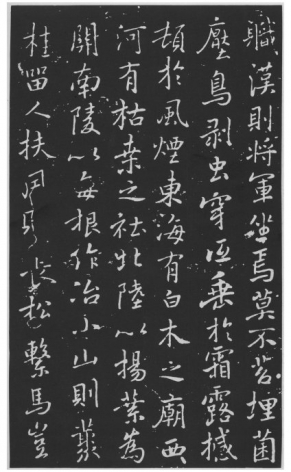 職漢則將軍坐焉莫不苔埋菌
壓鳥剥虫穿低垂於霜露撼
頓於風煙東海有白木之廟西
河有枯桒之社北陸以楊葉為
關南陵以每根作冶小山則叢
桂留人扶風則長松繫馬豈